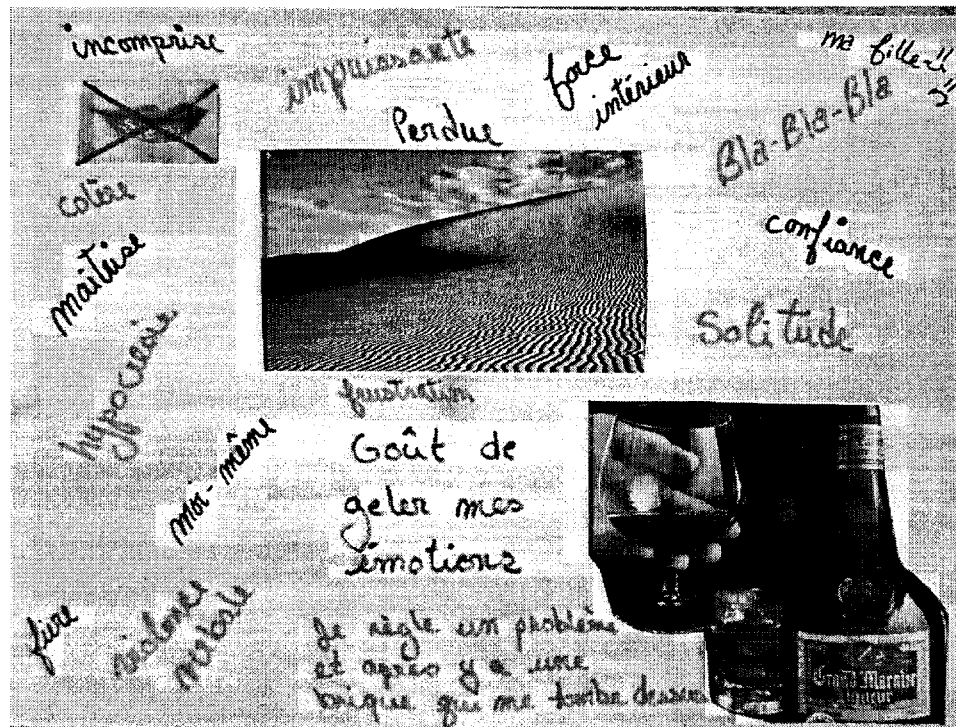 incomprise
impuissante
force
intérieur
ma fille
Perdue
Bla-Bla-Bla
colère
confiance
maitrise
Solitude
hypocrisie
frustration
moi-même
Goût de
geler mes
émotions
fière
violence
verbale
Je règle un problème
et après y a une
brique qui me tombe dessus
Grand Marnier
Liqueur